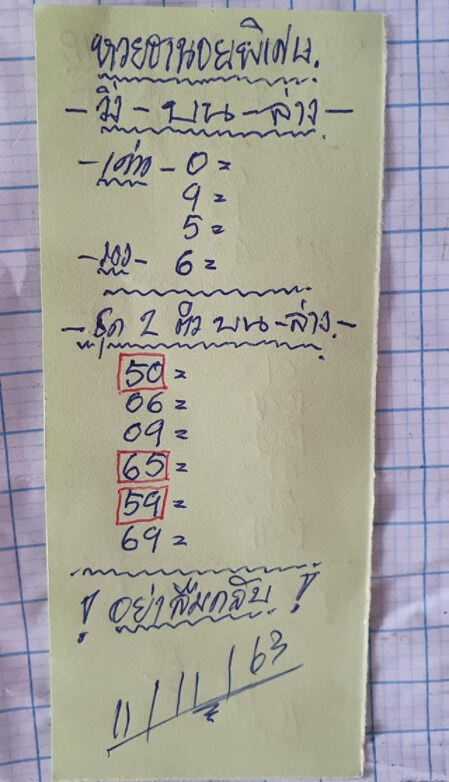 หวยฮานอยพิเศษ.
- วิ่ง - บน - ล่าง -
- เด่น - 0 =
9 =
5 =
- รอง - 6 =
- ชุด 2 ตัว บน - ล่าง. -
50 =
06 =
09 =
65 =
59 =
69 =
! อย่าลืมกลับ !
11/11/63